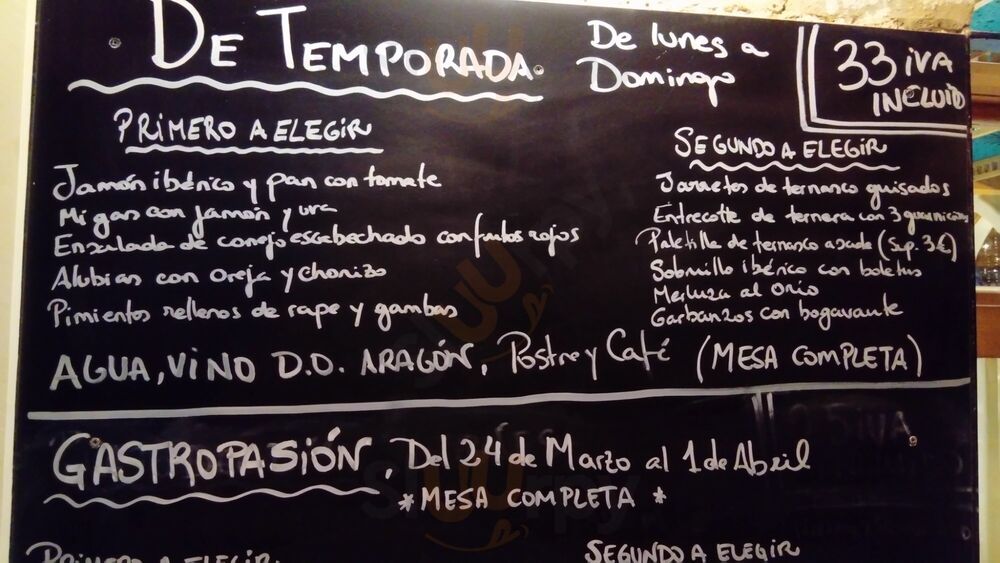 DE TEMPORADA.
De lunes a
Domingo
33 IVA
INCLUIDO
PRIMERO A ELEGIR
Jamón ibérico y pan con tomate
Migas con jamón y uva
Ensalada de conejo escabechado con frutos rojos
Alubias con oreja y chorizo
Pimientos rellenos de rape y gambas
SEGUNDO A ELEGIR
Jarretes de ternasco guisados
Entrecotte de ternera con 3 guarniciones
Paletilla de ternasco asada (Sup. 3€)
Solomillo ibérico con boletus
Merluza al Orio
Garbanzos con bogavante
AGUA, VINO D.O. ARAGÓN, Postre y Café (MESA COMPLETA)
GASTROPASIÓN, Del 24 de Marzo al 1 de Abril
* MESA COMPLETA *
PRIMERO A ELEGIR
SEGUNDO A ELEGIR